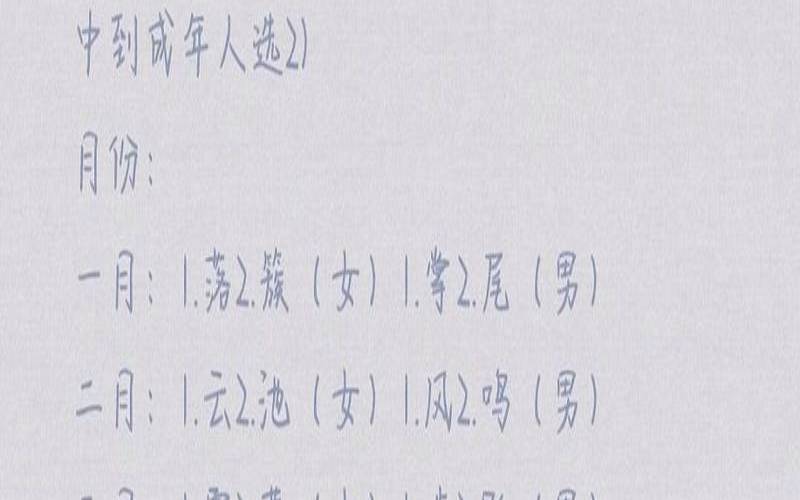 中到成年人选2)
月份：
一月：1.落2.簇（女）1.掌2.尾（男）
二月：1.云2.池（女）1.风2.鸣（男）